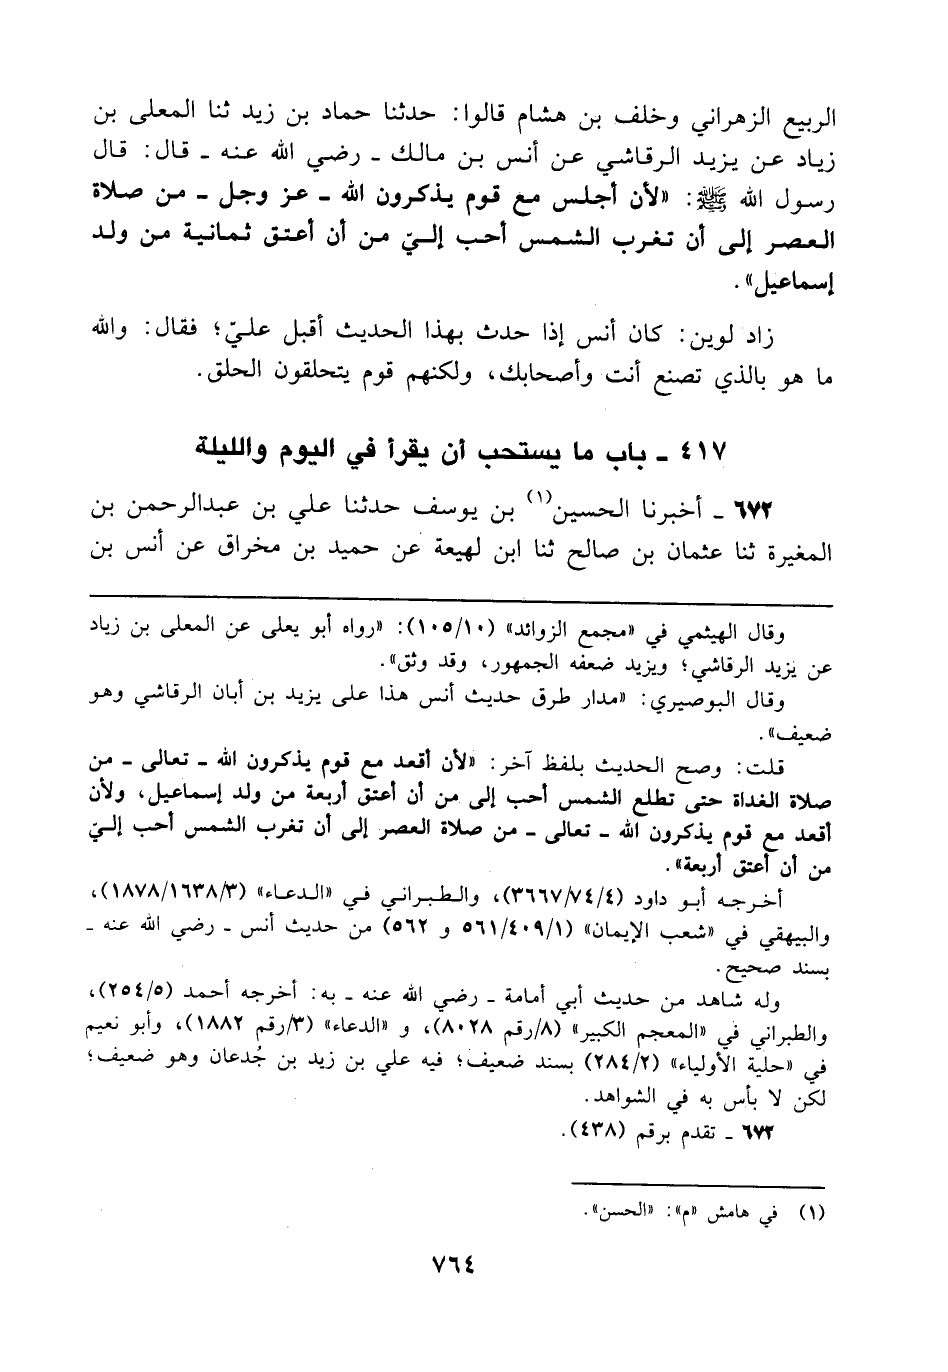 الربيع الزهراني وخلف بن هشام قالوا: حدثنا حماد بن زيد ثنا المعلى بن
زياد عن يزيد الرقاشي عن أنس بن مالك ـ رضي الله عنه ـ قال: قال
رسول الله ﷺ: «لأن أجلس مع قوم يذكرون الله ـ عز وجل ـ من صلاة
العصر إلى أن تغرب الشمس أحب إليّ من أن أعتق ثمانية من ولد
إسماعيل».
زاد لوين: كان أنس إذا حدث بهذا الحديث أقبل عليّ؛ فقال: والله
ما هو بالذي تصنع أنت وأصحابك، ولكنهم قوم يتحلقون الحلق.
٤١٧ ـ باب ما يستحب أن يقرأ في اليوم والليلة
٦٧٢ ـ أخبرنا الحسين(١) بن يوسف حدثنا علي بن عبدالرحمن بن
المغيرة ثنا عثمان بن صالح ثنا ابن لهيعة عن حميد بن مخراق عن أنس بن
وقال الهيثمي في «مجمع الزوائد» (١٠٥/١٠): «رواه أبو يعلى عن المعلى بن زياد
عن يزيد الرقاشي؛ ويزيد ضعفه الجمهور، وقد وثق».
وقال البوصيري: «مدار طرق حديث أنس هذا على يزيد بن أبان الرقاشي وهو
ضعيف».
قلت: وصح الحديث بلفظ آخر: «لأن أقعد مع قوم يذكرون الله ـ تعالى ـ من
صلاة الغداة حتى تطلع الشمس أحب إلى من أن أعتق أربعة من ولد إسماعيل، ولأن
أقعد مع قوم يذكرون الله ـ تعالى ـ من صلاة العصر إلى أن تغرب الشمس أحب إليّ
من أن أعتق أربعة».
أخرجه أبو داود (٣٦٦٧/٧٤/٤)، والطبراني في «الدعاء» (١٨٧٨/١٦٣٨/٣)،
والبيهقي في «شعب الإيمان» (٥٦١/٤٠٩/١ و ٥٦٢) من حديث أنس ـ رضي الله عنه ـ
بسند صحيح.
وله شاهد من حديث أبي أمامة ـ رضي الله عنه ـ به: أخرجه أحمد (٢٥٤/٥)،
والطبراني في «المعجم الكبير» (٨/رقم ٨٠٢٨)، و «الدعاء» (٣/رقم ١٨٨٢)، وأبو نعيم
في «حلية الأولياء» (٢٨٤/٢) بسند ضعيف؛ فيه علي بن زيد بن جُدعان وهو ضعيف؛
لكن لا بأس به في الشواهد.
٦٧٢ ـ تقدم برقم (٤٣٨).
(١) في هامش «م»: «الحسن».
٧٦٤